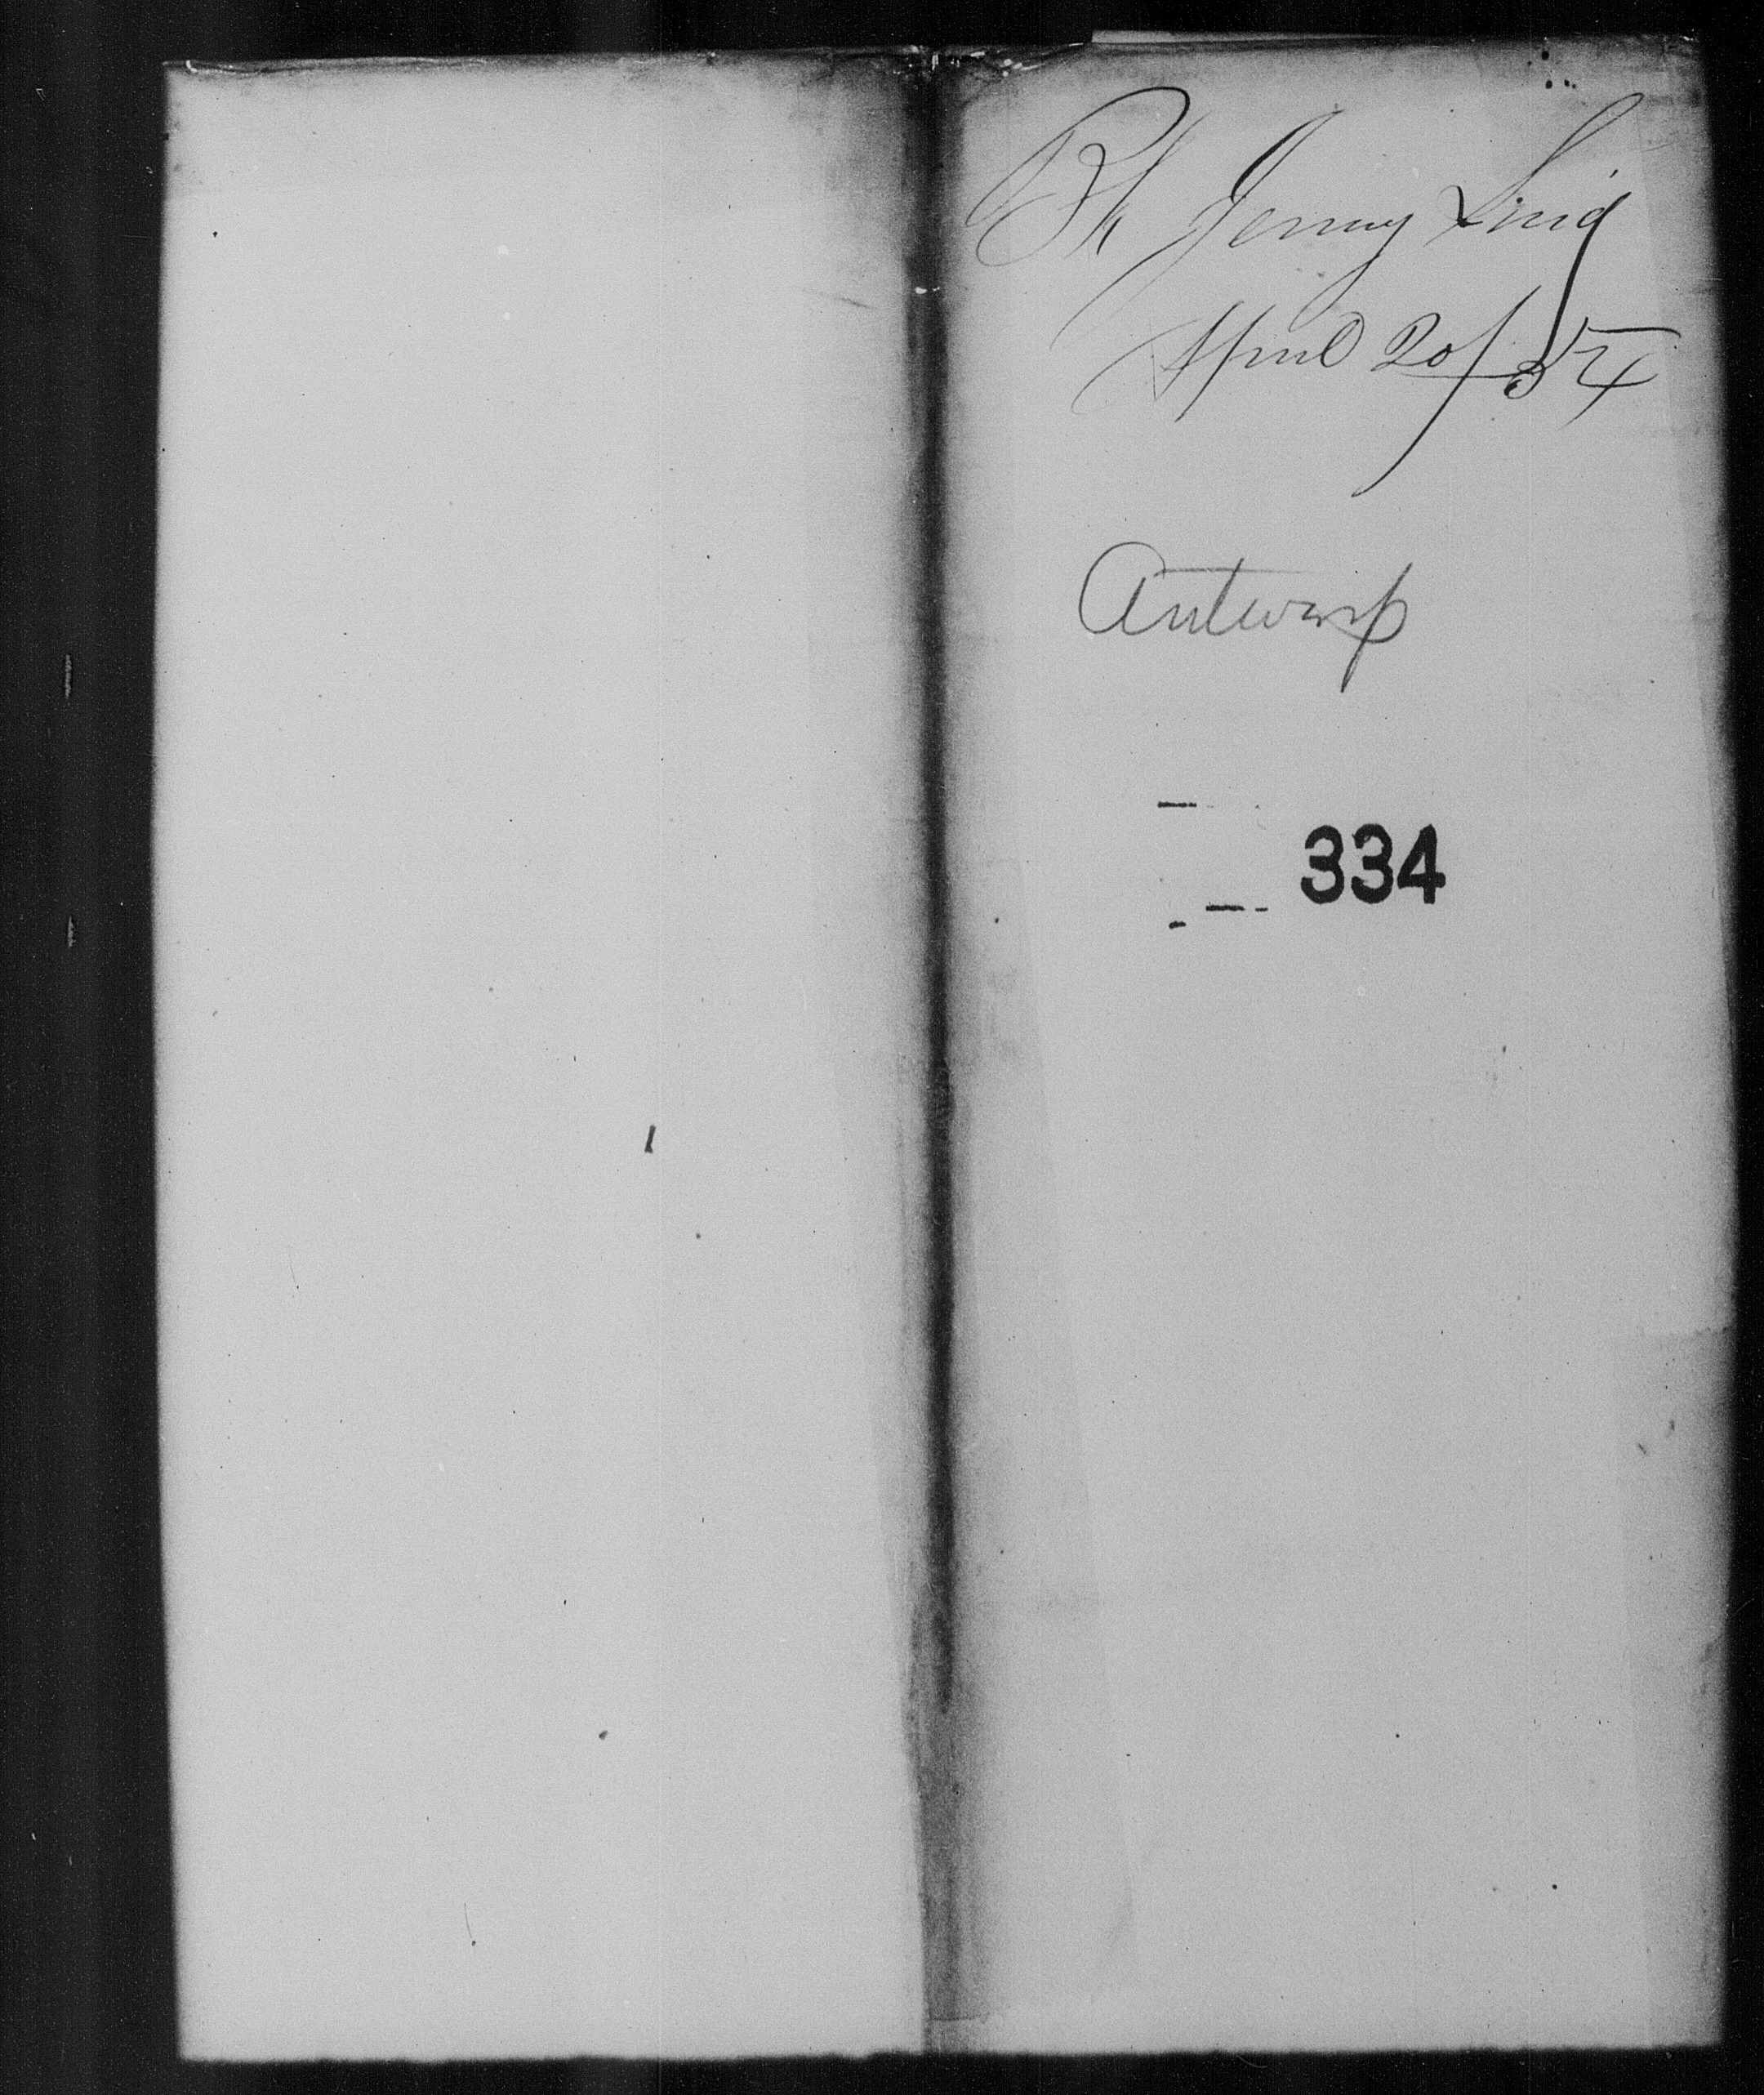 Bk Jenny Lind
April 20/54
Antwerp
334